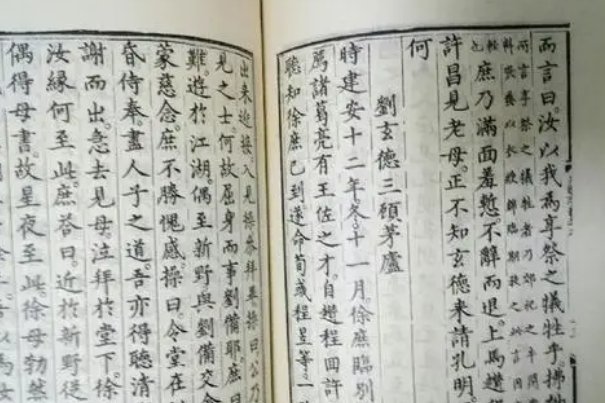 而言曰。汝以我為享祭之犧牲乎。拂袖
所言享祭之犧牲者乃郊祀之牛
庶乃滿面羞慙。不辭而退。上馬趲
許昌見老母。正不知玄德來請孔明
何
劉玄德三顧茅廬
時建安十二年冬。十一月。徐庶臨別
薦諸葛亮有王佐之才。自趲程回許
聽知徐庶已到。遂命荀彧程昱等一
出來迎接。入見操參拜畢。操曰。公乃
見之士。何故屈身而事劉備耶。庶曰
難。遊於江湖。偶至新野。與劉備交
蒙慈念。庶不勝愧感。操曰。令堂在
昏侍奉。盡人子之道。吾亦得聽清
謝而出。急去見母。泣拜於堂下。徐
汝緣何至此。庶答曰。近於新野從
偶得母書。故星夜至此。徐母勃然